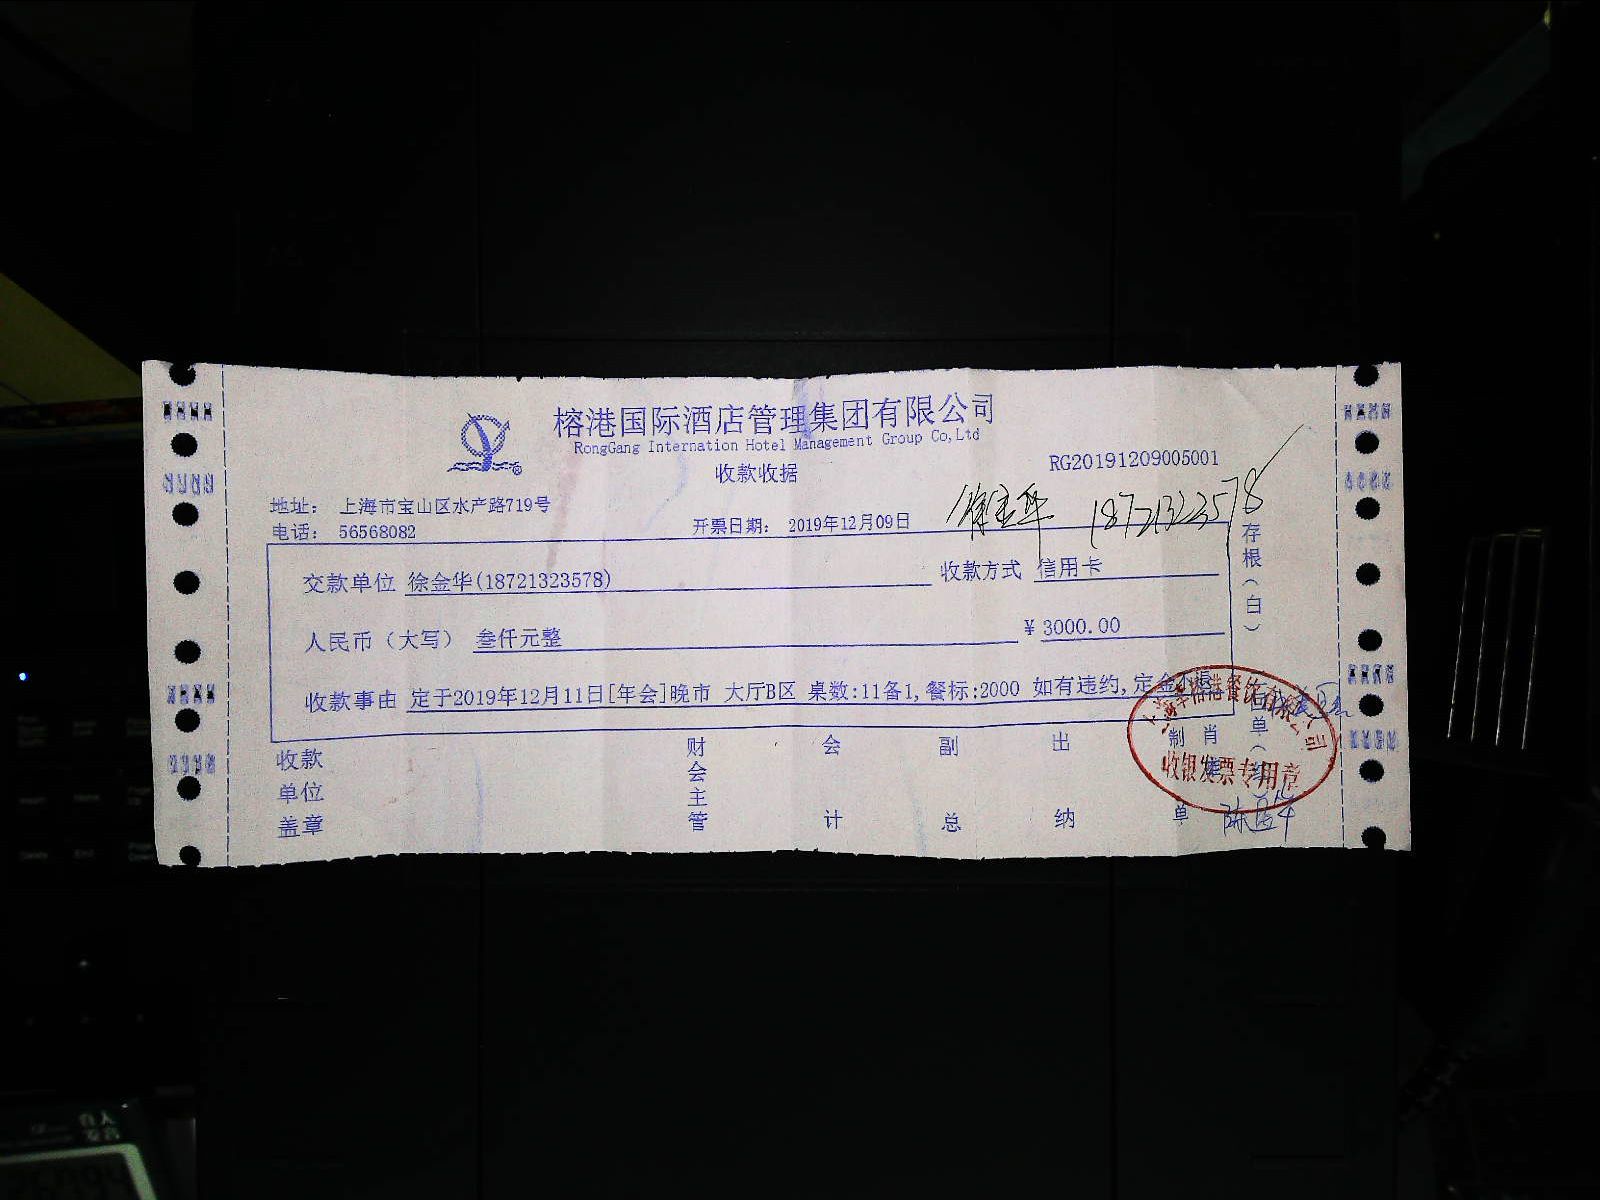 榕港国际酒店管理集团有限公司
RongGang Internation Hotel Management Group Co,Ltd
收款收据
RG20191209005001
地址： 上海市宝山区水产路719号
电话： 56568082
开票日期： 2019年12月09日
徐金华 18721323578
交款单位 徐金华(18721323578)
收款方式 信用卡
人民币（大写） 叁仟元整
¥ 3000.00
收款事由 定于2019年12月11日[年会]晚市 大厅B区 桌数:11备1,餐标:2000 如有违约,定金不退
存根（白）
收款单位盖章
财会主管
会计
副总
出纳
制单
收银发票专用章